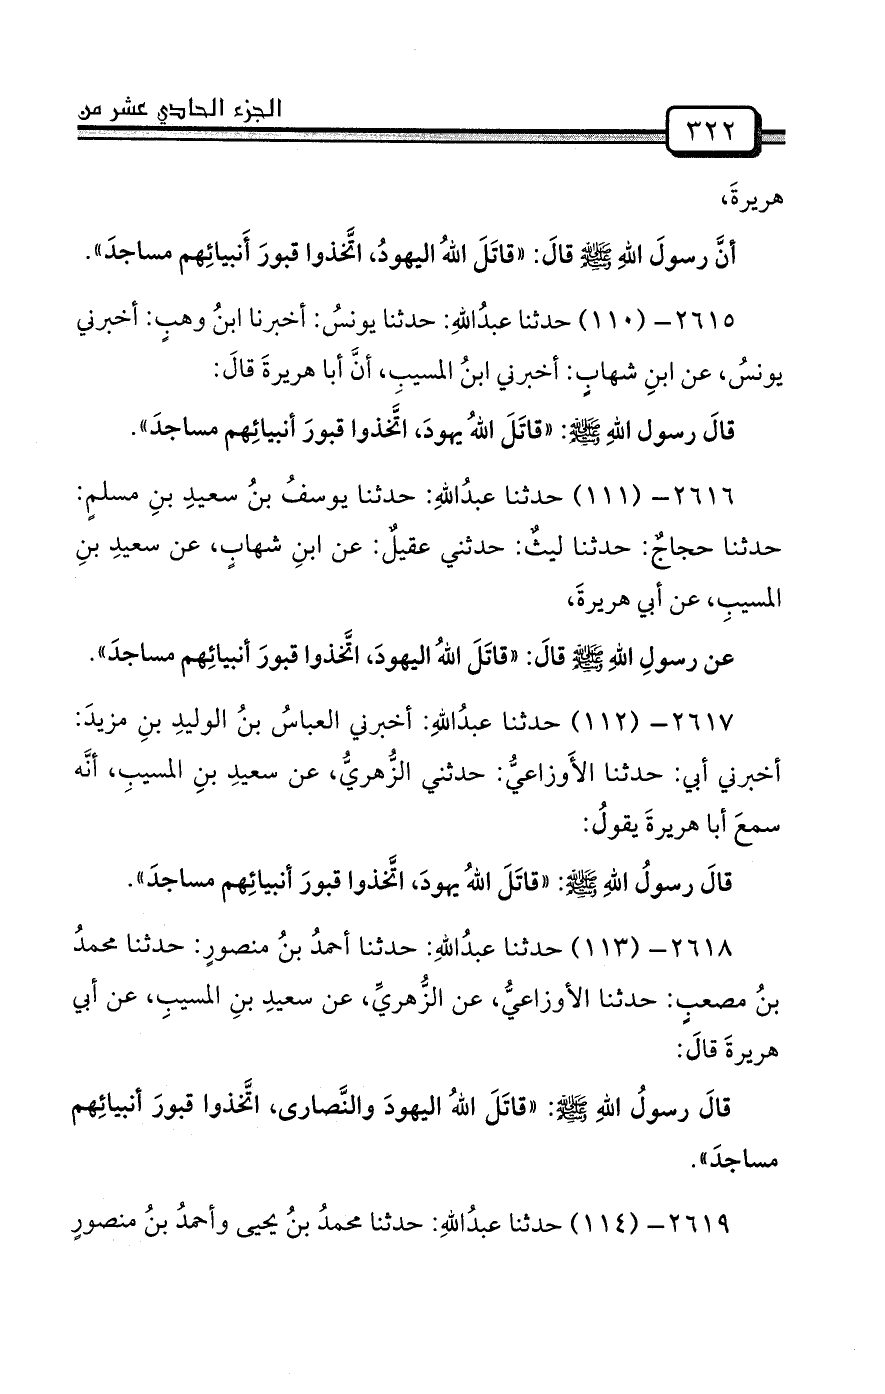 الجزء الحادي عشر من
٣٢٢
هريرةَ،
أنَّ رسولَ اللهِ ﷺ قالَ: «قاتَلَ اللهُ اليهودُ، اتَّخذوا قبورَ أَنبيائِهم مساجدَ».
٢٦١٥- (١١٠) حدثنا عبدُاللهِ: حدثنا يونسُ: أخبرنا ابنُ وهبٍ: أخبرني
يونسُ، عن ابنِ شهابٍ: أخبرني ابنُ المسيبِ، أنَّ أبا هريرةَ قالَ:
قالَ رسول اللهِ ﷺ: «قاتَلَ اللهُ يهودَ، اتَّخذوا قبورَ أنبيائِهم مساجدَ».
٢٦١٦- (١١١) حدثنا عبدُاللهِ: حدثنا يوسفُ بنُ سعيدِ بنِ مسلمٍ:
حدثنا حجاجٌ: حدثنا ليثٌ: حدثني عقيلٌ: عن ابنِ شهابٍ، عن سعيدِ بنِ
المسيبِ، عن أبي هريرةَ،
عن رسولِ اللهِ ﷺ قالَ: «قاتَلَ اللهُ اليهودَ، اتَّخذوا قبورَ أنبيائِهم مساجدَ».
٢٦١٧- (١١٢) حدثنا عبدُاللهِ: أخبرني العباسُ بنُ الوليدِ بنِ مزيدَ:
أخبرني أبي: حدثنا الأَوزاعيُّ: حدثني الزُّهريُّ، عن سعيدِ بنِ المسيبِ، أنَّه
سمعَ أبا هريرةَ يقولُ:
قالَ رسولُ اللهِ ﷺ: «قاتَلَ اللهُ يهودَ، اتَّخذوا قبورَ أنبيائِهم مساجدَ».
٢٦١٨- (١١٣) حدثنا عبدُاللهِ: حدثنا أحمدُ بنُ منصورٍ: حدثنا محمدُ
بنُ مصعبٍ: حدثنا الأوزاعيُّ، عن الزُّهريِّ، عن سعيدِ بنِ المسيبِ، عن أبي
هريرةَ قالَ:
قالَ رسولُ اللهِ ﷺ: «قاتَلَ اللهُ اليهودَ والنَّصارى، اتَّخذوا قبورَ أنبيائِهم
مساجدَ».
٢٦١٩- (١١٤) حدثنا عبدُاللهِ: حدثنا محمدُ بنُ يحيى وأحمدُ بنُ منصورٍ